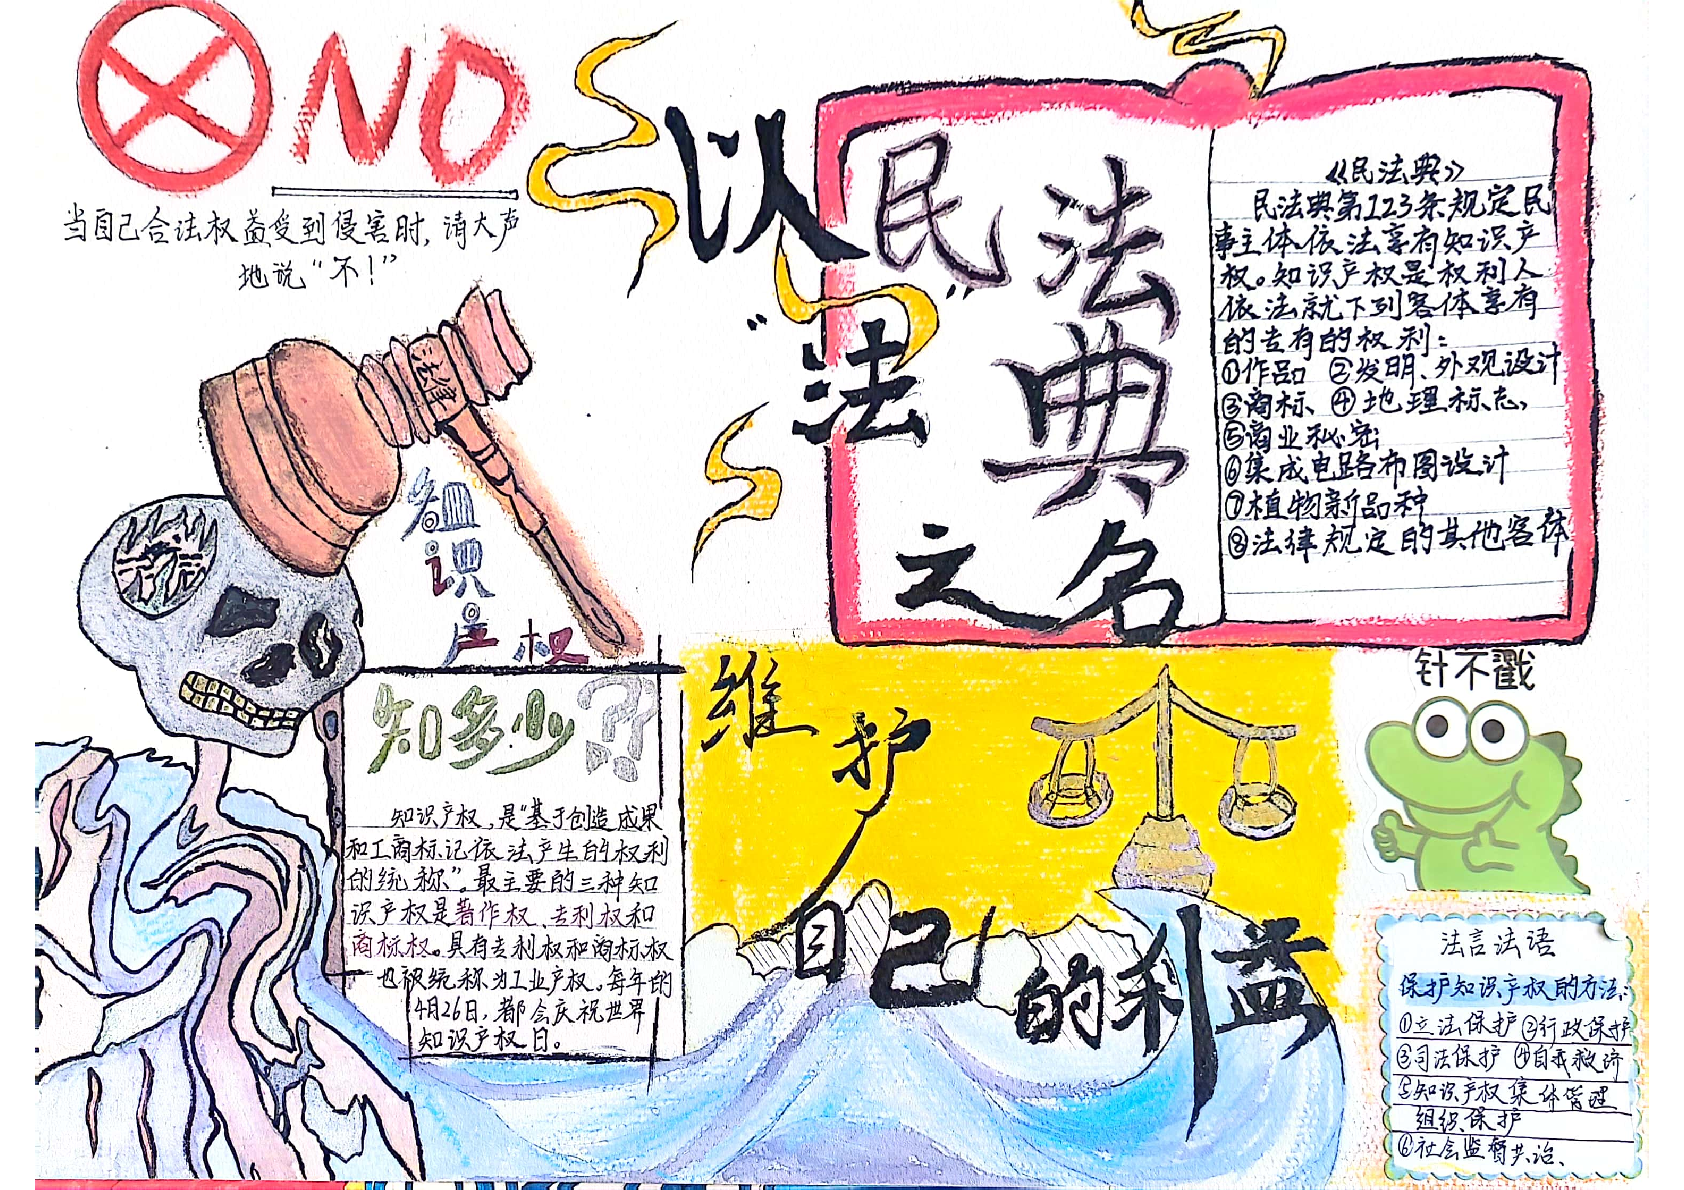 NO
当自己合法权益受到侵害时,请大声
地说“不!”
以
“法”
民法典
之名
《民法典》
民法典第123条规定民
事主体依法享有知识产
权。知识产权是权利人
依法就下列客体享有
的专有的权利:
①作品 ②发明、外观设计
③商标 ④地理标志、
⑤商业秘密
⑥集成电路布图设计
⑦植物新品种
⑧法律规定的其他客体
法律
知识产权
知多少??
知识产权,是“基于创造成果
和工商标记依法产生的权利
的统称”。最主要的三种知
识产权是著作权、专利权和
商标权。具有专利权和商标权
也被统称为工业产权。每年的
4月26日,都会庆祝世界
知识产权日。
维护
自己的利益
针不戳
法言法语
保护知识产权的方法:
①立法保护 ②行政保护
③司法保护 ④自我救济
⑤知识产权集体管理
组织保护
⑥社会监督共治、